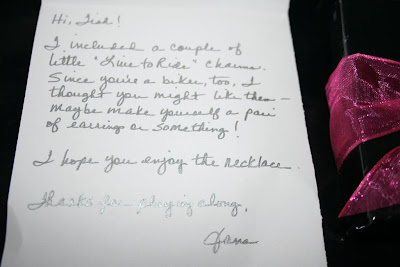 Hi, Tish!
I included a couple of
little "Live to Ride" charms.
Since you're a biker, too, I
thought you might like them -
maybe make yourself a pair
of earrings or something!
I hope you enjoy the necklace.
Thanks for playing along,